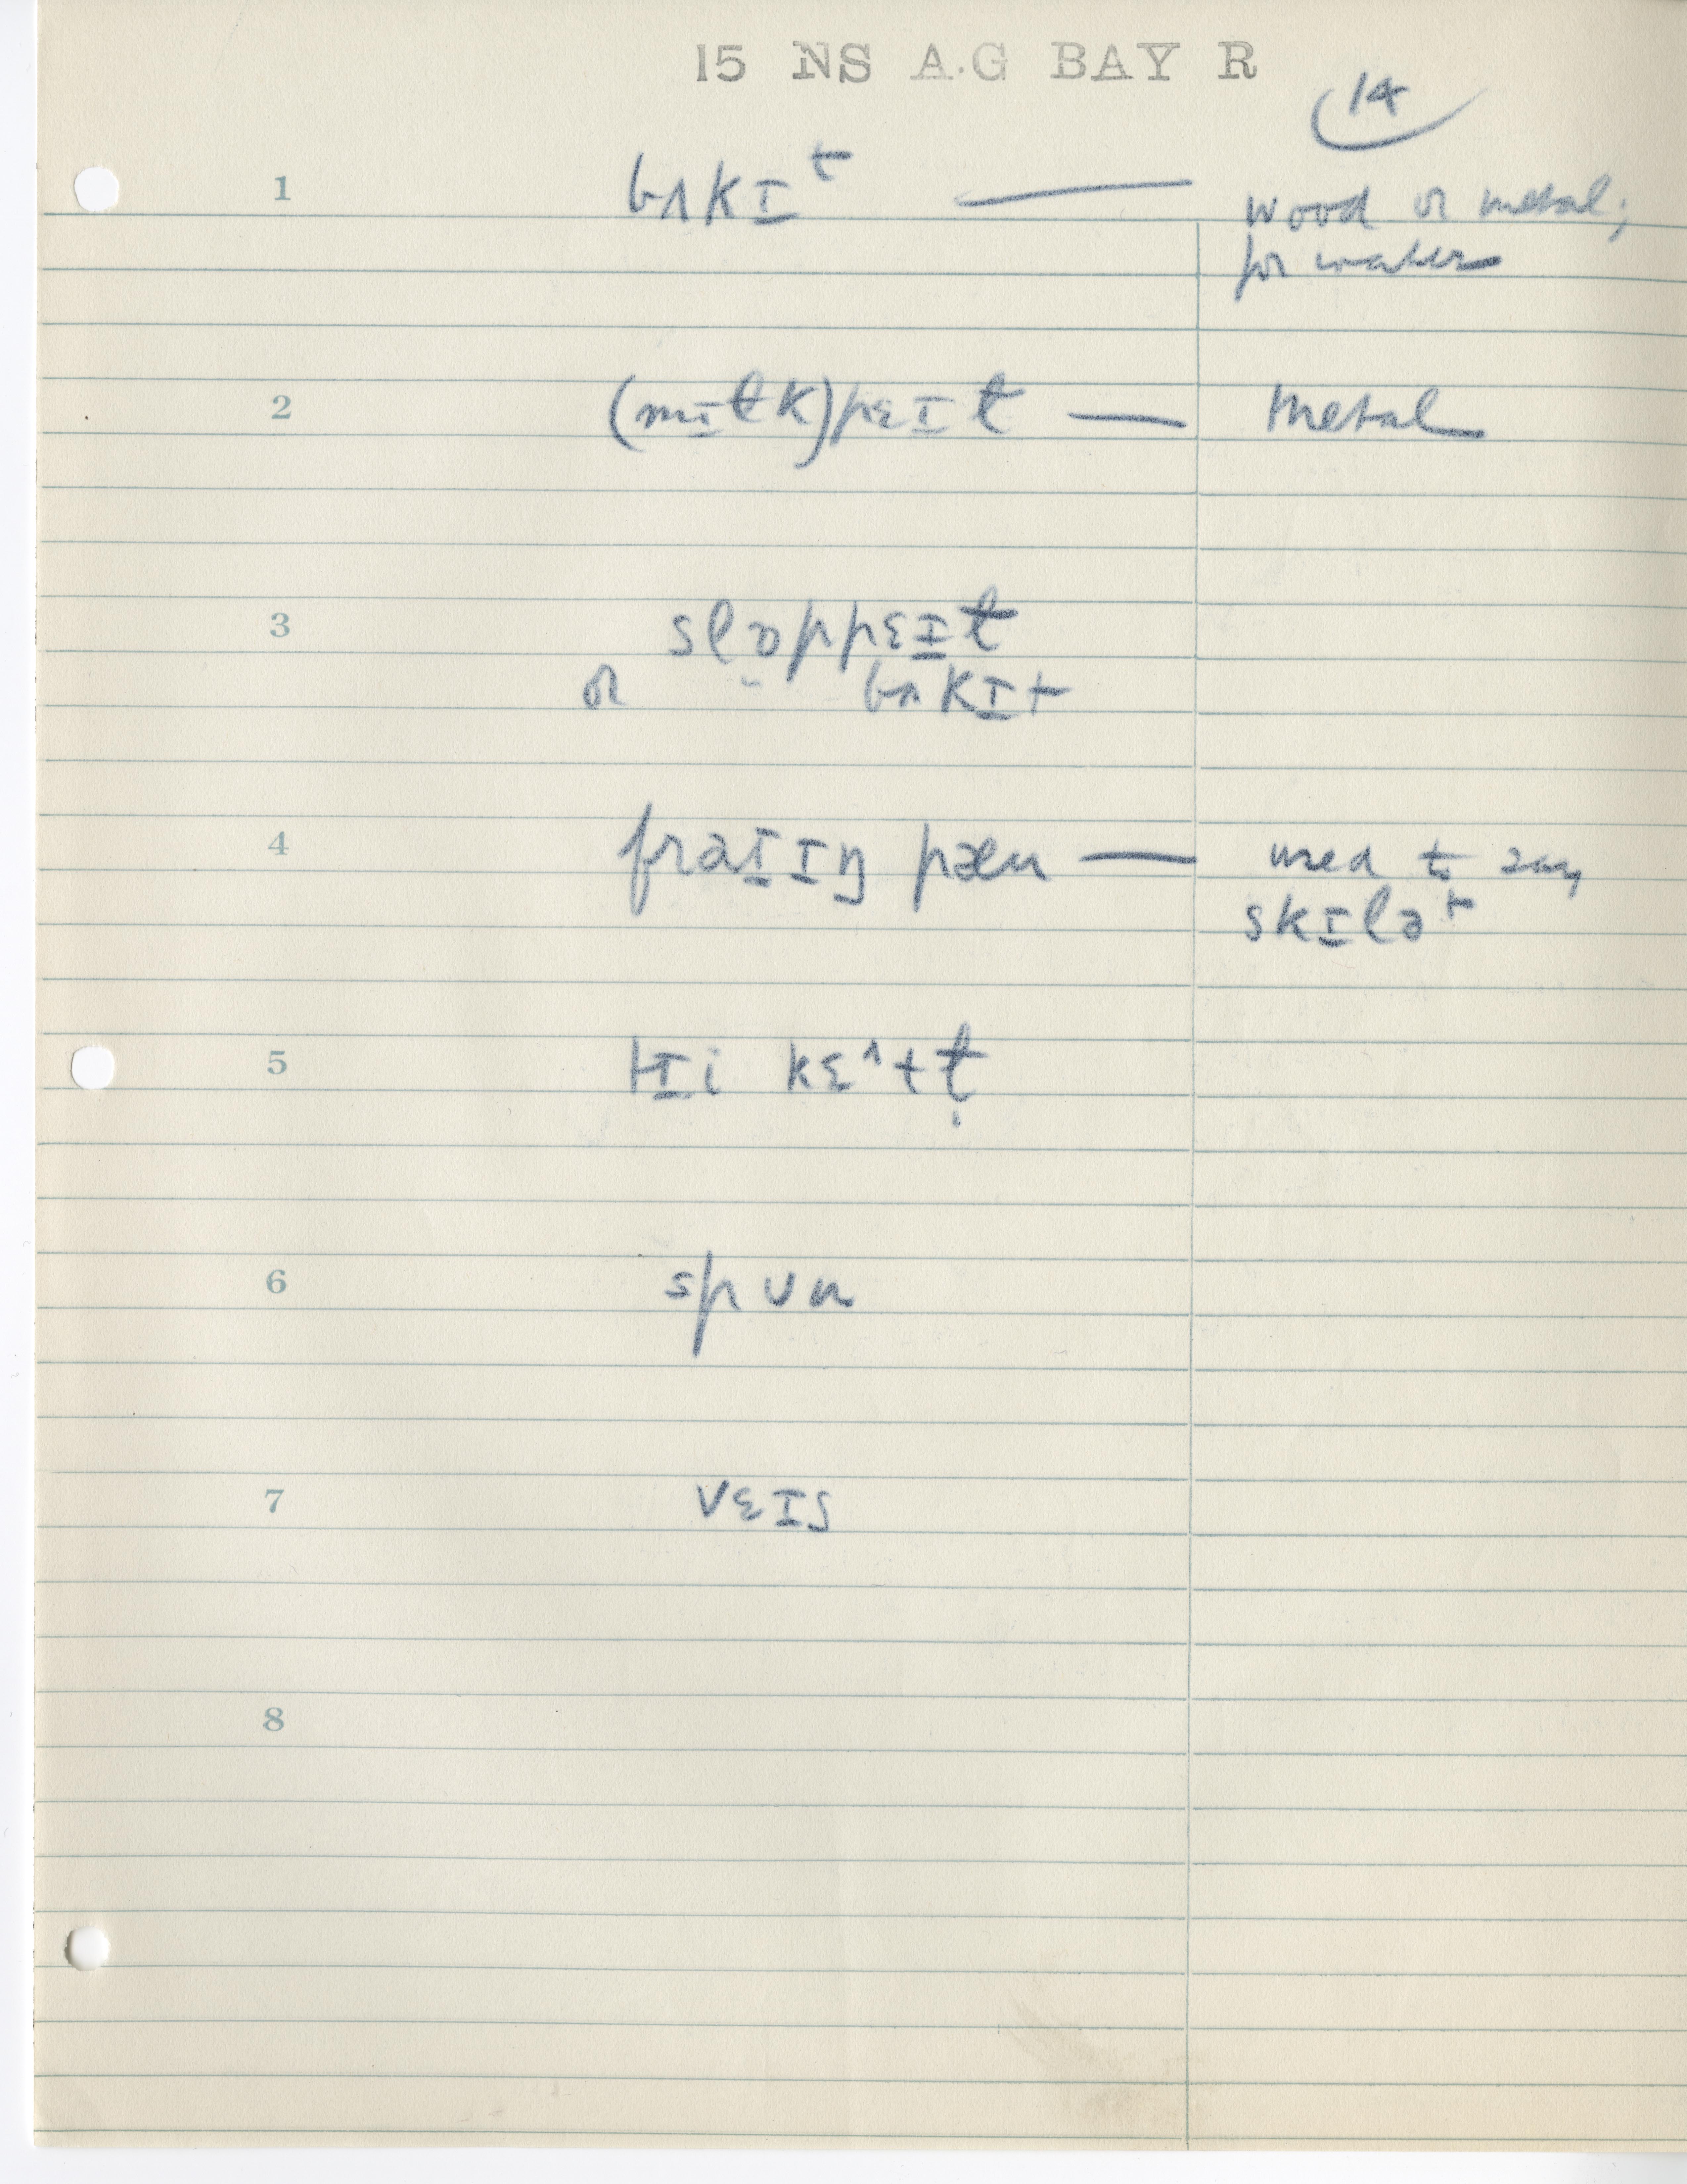 15 NS A.G BAY R
14
1 bʌkɪᵗ — wood or metal;
for water
2 (mɪɫk)pɛɪɫ — metal
3 slɒppɛɪɫ
or " bʌkɪt
4 fraɪɪŋ pæn — used to say
skɪləᵗ
5 tɪi kɛ^tɫ̩
6 spun
7 vɛɪs
8